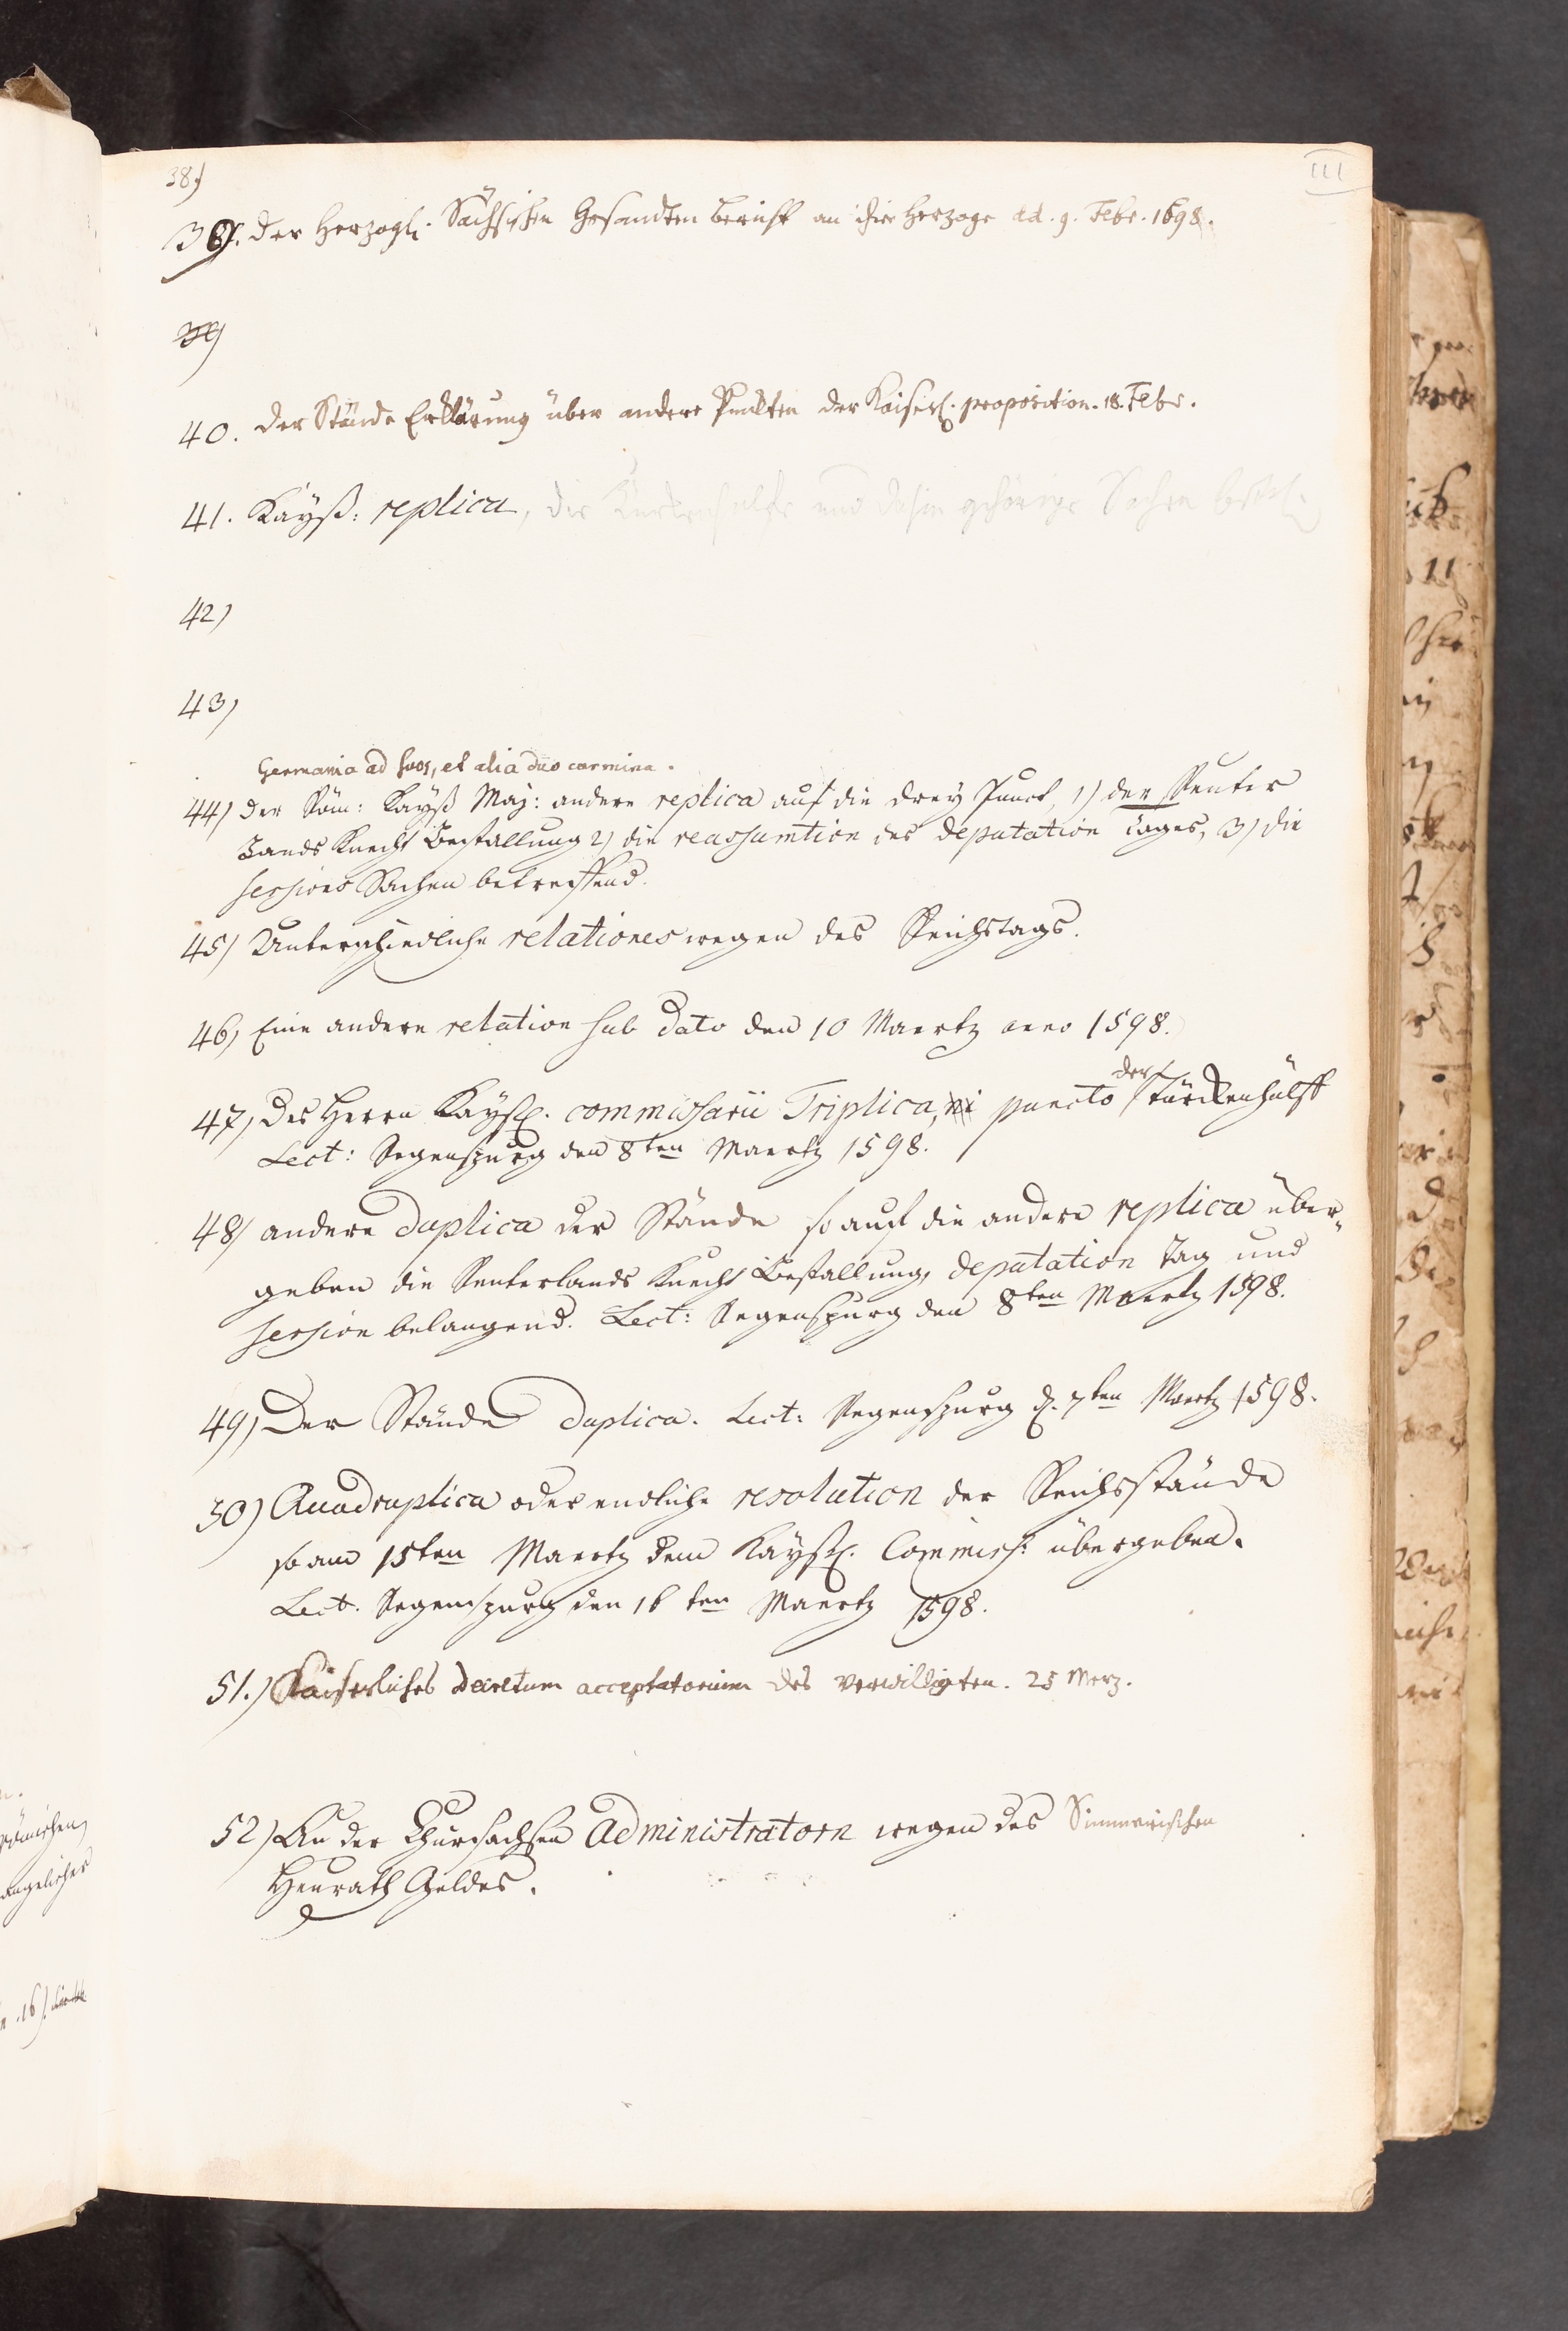 III
38)
38. der Herzogl. Sächsischen Gesandten Bericht an ihre Herzoge dd. 9. Febr. 1598.
39)
40. der Stände Erklärung über andere Puncten der Kaiserl. proposition. 18. Febr.
41. Kayß: replica, die Türkenhülfe und dahin gehörige Sachen betrl.
42)
43)
Germania ad suos, et alia duo carmina.
44) der Röm: Kayß Maj: andere replica auf die drey Punct, 1) der Reuter
Lands Knecht Bestallung 2) die reassumtion des deputation Tages, 3) die
sessions Sachen betreffend.
45) Unterschiedliche relationes wegen des Reichstags.
46) Eine andere relation sub dato den 10 Maertz anno 1598.
47) Des Herrn Kayßl. commissarii Triplica, in puncto der Türckenhülff
Lect: Regenspurg den 8ten Maertz 1598.
48) andere duplica der Stände so auf die andere replica über„
geben die Reuterlands Knecht Bestallung, deputation Tag und
session belangend. Lect: Regenspurg den 8ten Maertz 1598.
49) Der Stände duplica. Lect: Regenspurg d. 7ten Maertz 1598.
50) Quadruplica oder endliche resolution der Reichsstände
so am 15ten Maertz dem Kayßl. Commiss: übergeben.
Lect. Regenspurg den 16 ten Maertz 1598.
51.) Kaiserliches decretum acceptatorium des verwilligten. 25 Merz.
52) An der Chursachsen Administratorn wegen des Simmerischen
Heurath Geldes.